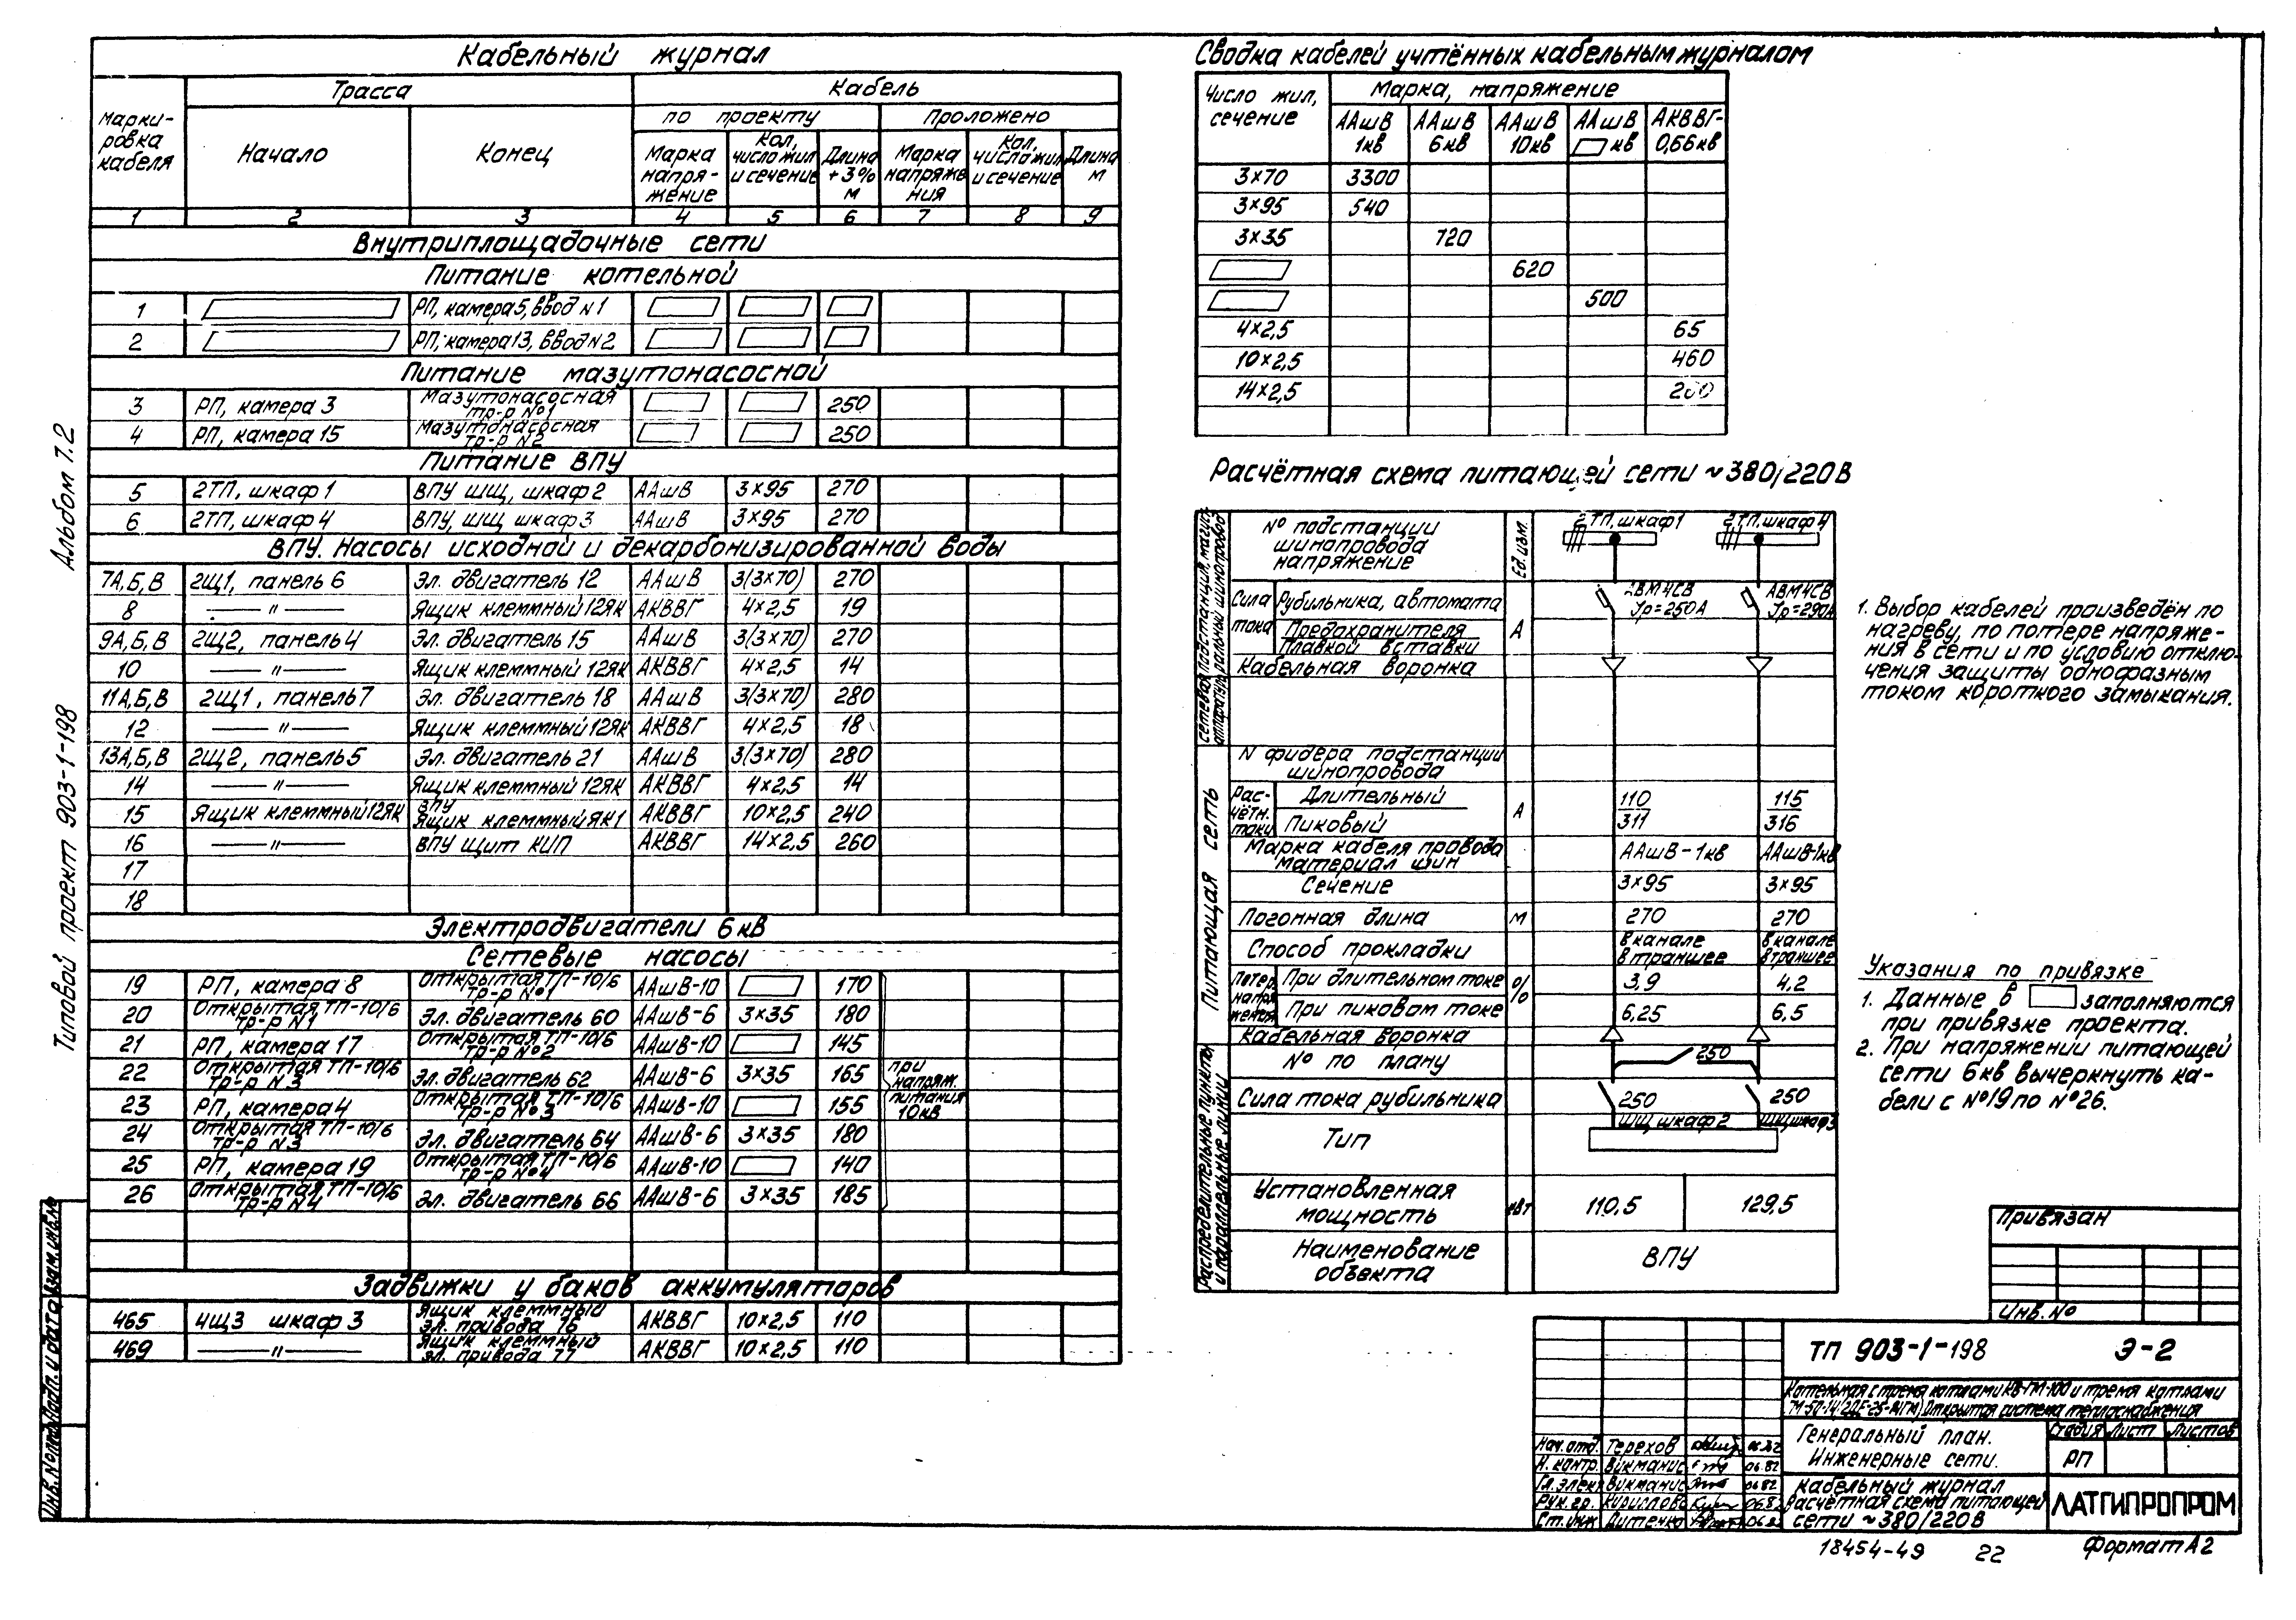 Кабельный журнал
Марки-
ровка
кабеля
Трасса
Кабель
Начало
Конец
по проекту
Проложено
Марка
напря-
жение
Кол,
число жил
и сечение
Длина
+3%
м
Марка
напряже
ния
Кол,
число жил
и сечение
Длина
м
1 2 3 4 5 6 7 8 9
Внутриплощадочные сети
Питание котельной
1 РП, камера 5, ввод N1
2 РП, камера 13, ввод N2
Питание мазутонасосной
3 РП, камера 3 Мазутонасосная тр-р №1 250
4 РП, камера 15 Мазутонасосная тр-р N2 250
Питание ВПУ
5 2ТП, шкаф 1 ВПУ ШЩ, шкаф 2 ААшВ 3×95 270
6 2ТП, шкаф 4 ВПУ, ШЩ шкаф 3 ААшВ 3×95 270
ВПУ. Насосы исходной и декарбонизированной воды
7А,Б,В 2Щ1, панель 6 Эл. двигатель 12 ААшВ 3(3×70) 270
8 —〃— Ящик клеммный 12ЯК АКВВГ 4×2,5 19
9А,Б,В 2Щ2, панель 4 Эл. двигатель 15 ААшВ 3(3×70) 270
10 —〃— Ящик клеммный 12ЯК АКВВГ 4×2,5 14
11А,Б,В 2Щ1, панель 7 Эл. двигатель 18 ААшВ 3(3×70) 280
12 —〃— Ящик клеммный 12ЯК АКВВГ 4×2,5 18
13А,Б,В 2Щ2, панель 5 Эл. двигатель 21 ААшВ 3(3×70) 280
14 —〃— Ящик клеммный 12ЯК АКВВГ 4×2,5 14
15 Ящик клеммный 12ЯК ВПУ Ящик клеммный ЯК1 АКВВГ 10×2,5 240
16 —〃— ВПУ щит КИП АКВВГ 14×2,5 260
17
18
Электродвигатели 6 кВ
Сетевые насосы
19 РП, камера 8 Открытая ТП-10/6 тр-р №1 ААшВ-10 170
20 Открытая ТП-10/6 тр-р N1 Эл. двигатель 60 ААшВ-6 3×35 180
21 РП, камера 17 Открытая ТП-10/6 тр-р №2 ААшВ-10 145
22 Открытая ТП-10/6 тр-р N3 Эл. двигатель 62 ААшВ-6 3×35 165
23 РП, камера 4 Открытая ТП-10/6 тр-р №3 ААшВ-10 155
24 Открытая ТП-10/6 тр-р N3 Эл. двигатель 64 ААшВ-6 3×35 180
25 РП, камера 19 Открытая ТП-10/6 тр-р №4 ААшВ-10 140
26 Открытая ТП-10/6 тр-р N4 Эл. двигатель 66 ААшВ-6 3×35 185
при
напряж.
питания
10кв
Задвижки у баков аккумуляторов
465 4Щ3 шкаф 3 Ящик клеммный эл. привода 76 АКВВГ 10×2,5 110
469 —〃— Ящик клеммный эл. привода 77 АКВВГ 10×2,5 110
Сводка кабелей учтённых кабельным журналом
Число жил,
сечение
Марка, напряжение
ААшВ 1кв
ААшВ 6кв
ААшВ 10кв
ААшВ кв
АКВВГ- 0,66кв
3×70 3300
3×95 540
3×35 720
620
500
4×2,5 65
10×2,5 460
14×2,5 260
Расчётная схема питающей сети ~380/220В
№ подстанции
шинопровода
напряжение
Ед. изм.
2ТП, шкаф 1
2ТП, шкаф 4
Сила
тока
Рубильника, автомата
Предохранителя
Плавкой вставки
А
АВМ4СВ
Jр=250А
АВМ4СВ
Jр=290А
Кабельная воронка
N фидера подстанции
шинопровода
Питающая сеть
Рас-
чётн.
токи
Длительный
Пиковый
А
110
311
115
316
Марка кабеля провода
Материал шин
ААшВ-1кв ААшВ-1кв
Сечение 3×95 3×95
Погонная длина м 270 270
Способ прокладки
в канале
в траншее
в канале
в траншее
Потер.
напря
жения
При длительном токе
%
3,9 4,2
При пиковом токе 6,25 6,5
Кабельная воронка
Распределительные пункты
и параллельные линии
№ по плану 250
Сила тока рубильника 250 250
Тип
ШЩ шкаф 2 ШЩ шкаф 3
Установленная
мощность
кВт
110,5 129,5
Наименование
объекта
ВПУ
1. Выбор кабелей произведён по
нагреву, по потере напряже-
ния в сети и по условию отклю-
чения защиты однофазным
током короткого замыкания.
Указания по привязке
1. Данные в заполняются
при привязке проекта.
2. При напряжении питающей
сети 6кв вычеркнуть ка-
бели с №19 по №26.
Привязан
Инв. №
ТП 903-1-198 Э-2
Котельная с тремя котлами КВ-ГМ-100 и тремя котлами
ГМ-50-14(2ДЕ-25-14ГМ) Открытая система теплоснабжения
Генеральный план.
Инженерные сети.
Стадия Лист Листов
РП
Кабельный журнал
Расчётная схема питающей
сети ~380/220В
ЛАТГИПРОПРОМ
Нач. отд. Терехов 06.82
Н. контр. Викманис 06.82
Гл. элек Викманис 06.82
Рук. гр.
Ст. инж
18454-49 22
Формат А2
Альбом 7.2
Типовой проект 903-1-198
Инв. № подл. Подп. и дата Взам. инв. №